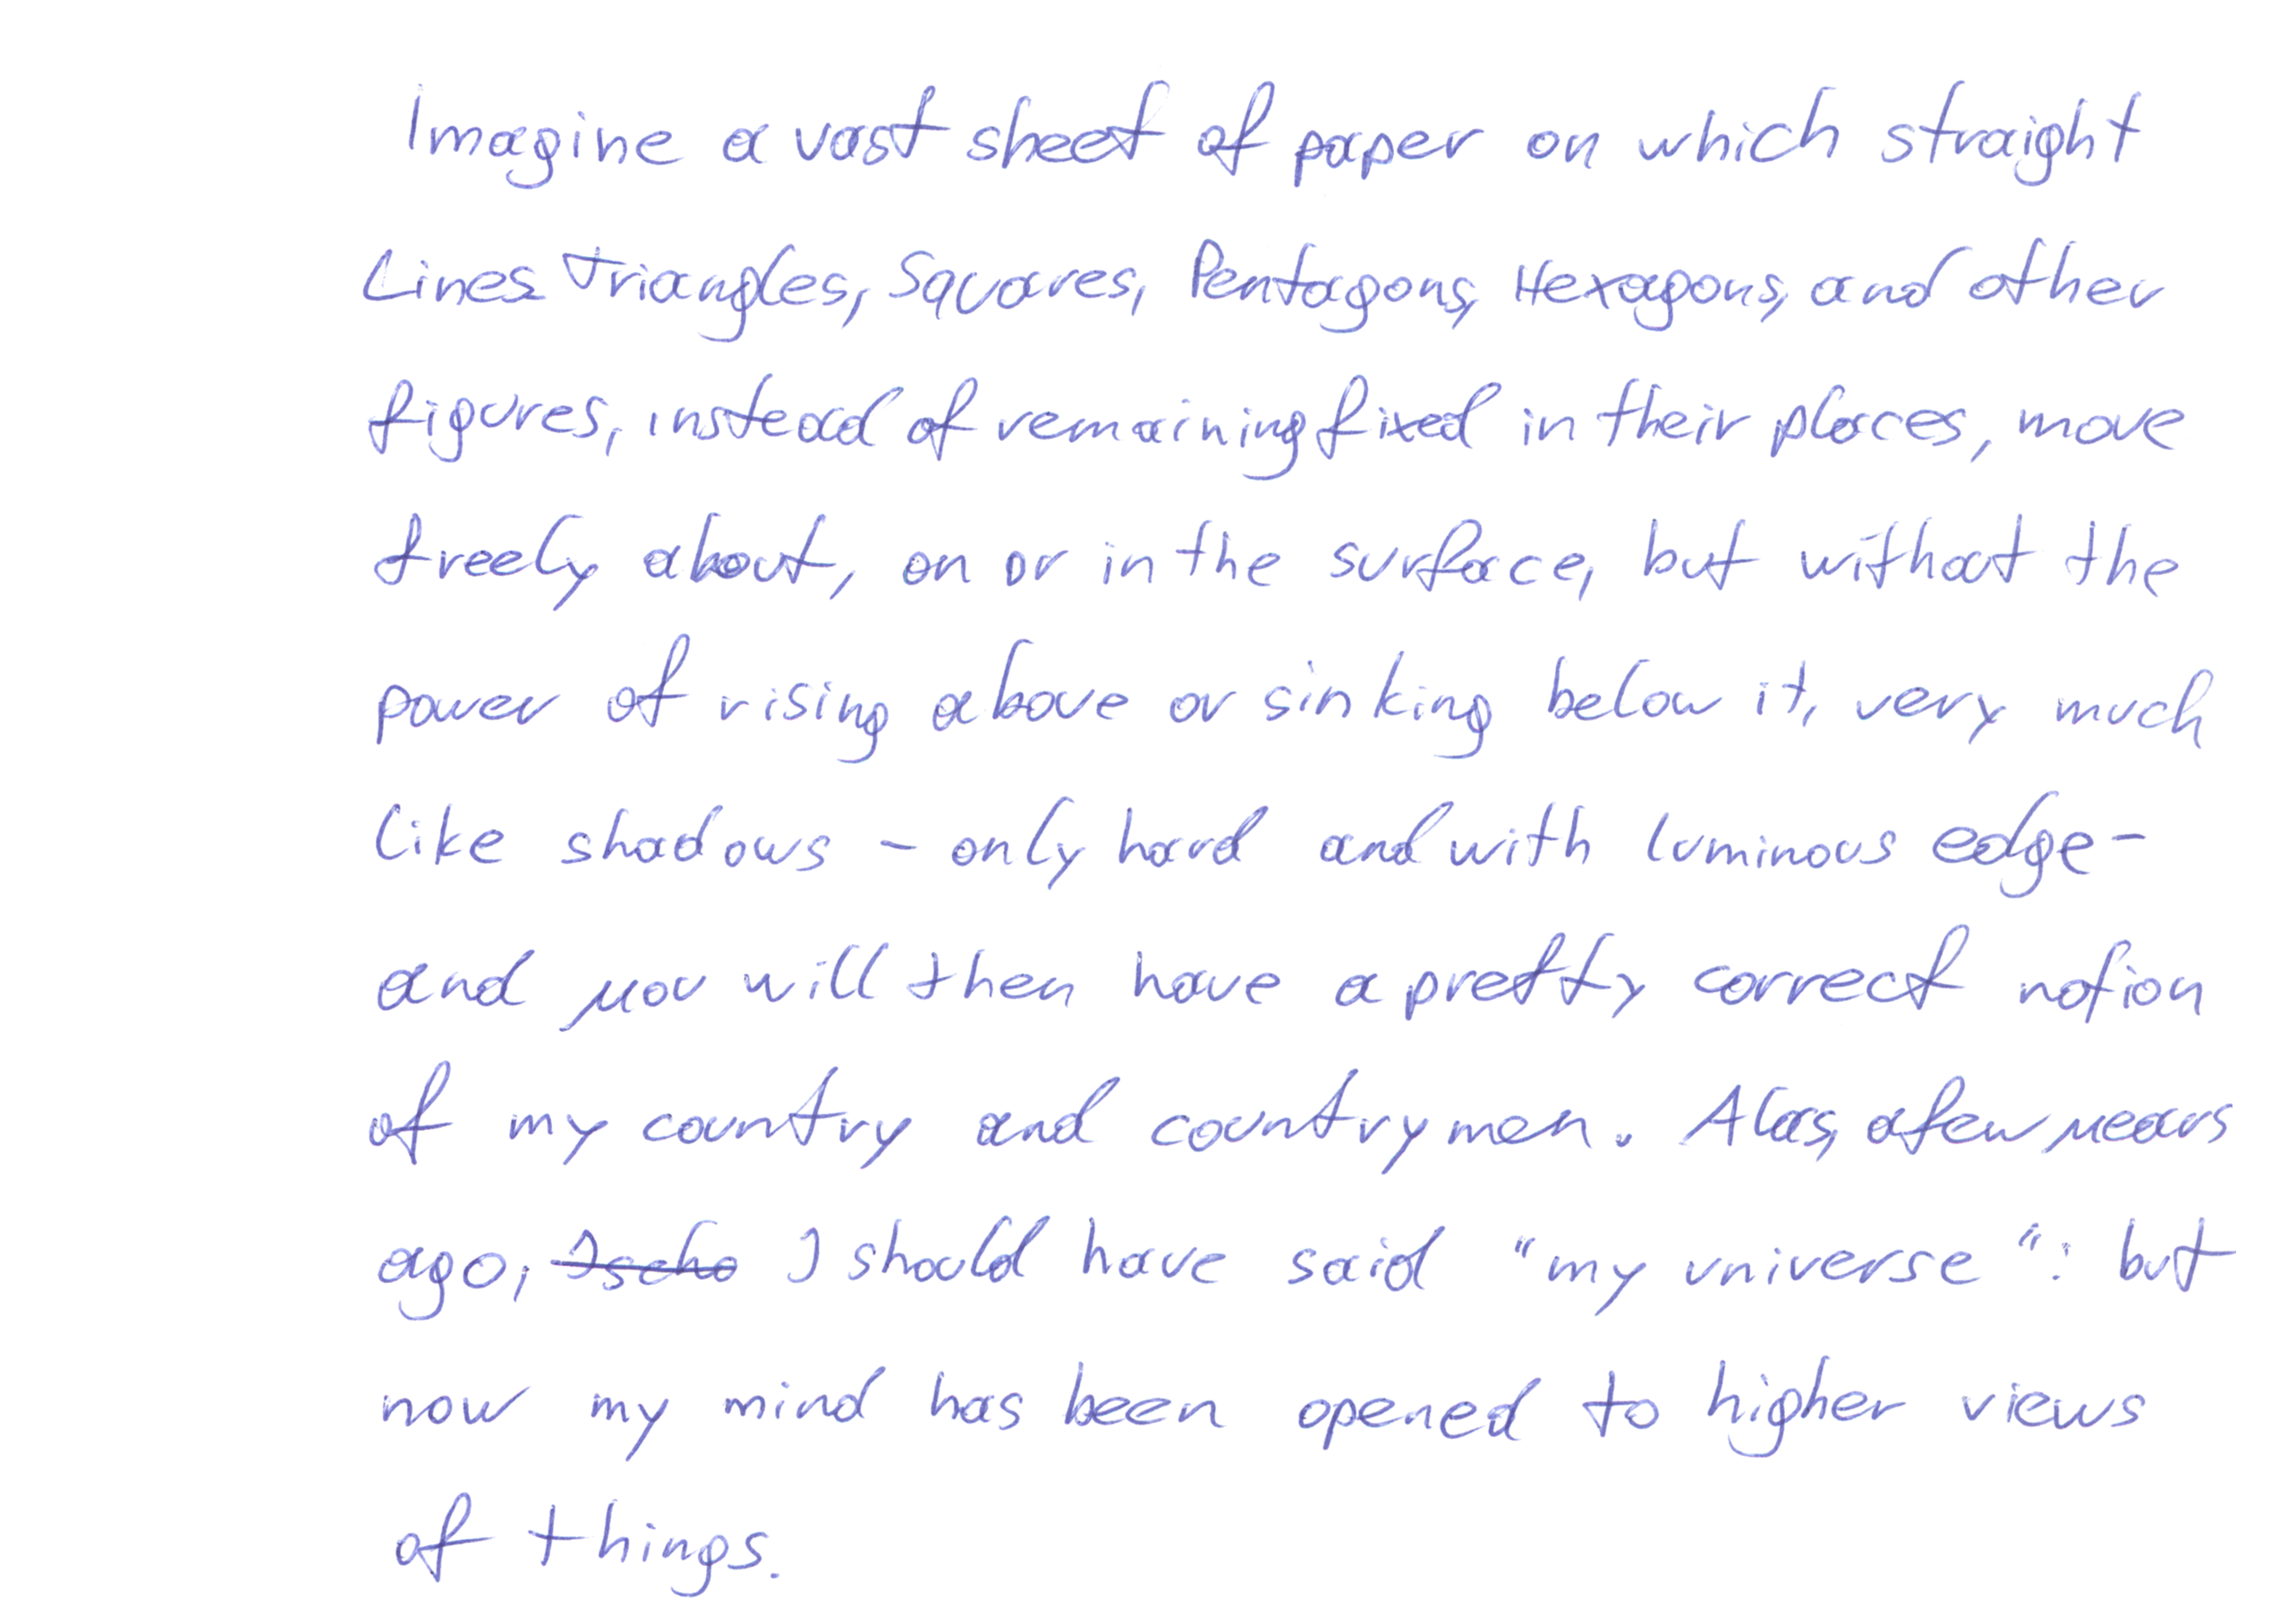 Imagine a vast sheet of paper on which straight
Lines Triangles, Squares, Pentagons, Hexagons, and other
figures, instead of remaining fixed in their places, move
freely about, on or in the surface, but without the
power of rising above or sinking below it, very much
like shadows - only hard and with luminous edge -
and you will then have a pretty correct notion
of my country and countrymen. Alas, a few years
ago, I should have said "my universe": but
now my mind has been opened to higher views
of things.